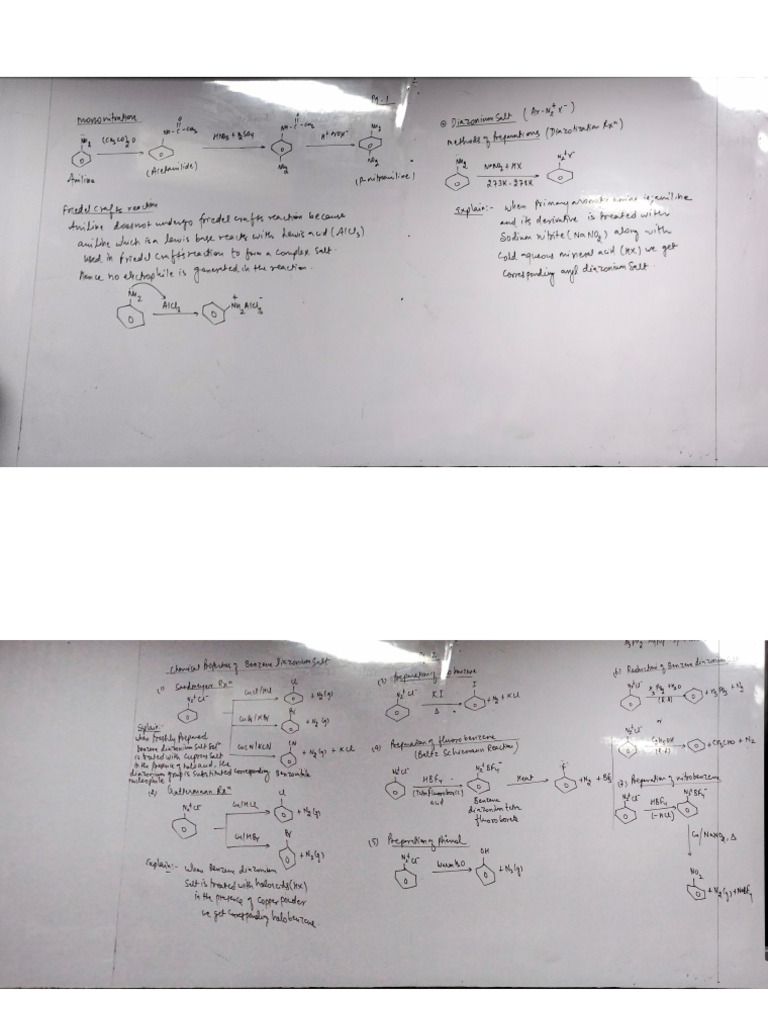 Pg-1
Mononitration
NH2
(CH3CO)2O
O
NH-C-CH3
HNO3 + H2SO4
O
NH-C-CH3
NO2
H+ or OH-
NH2
NO2
Aniline
(Acetanilide)
(P-nitroaniline)
Friedel Crafts reaction
Aniline does not undergo friedel crafts reaction because
aniline which is a lewis base reacts with Lewis acid (AlCl3)
used in Friedel Crafts reaction to form a complex salt.
Hence no electrophile is generated in the reaction.
NH2
AlCl3
+
NH2AlCl3-
Diazonium Salt (Ar-N2+X-)
Methods of Preparations (Diazotization Rxn)
NH2
NaNO2 + HX
273K-278K
N2+X-
Explain:- When primary aromatic amine is aniline
and its derivative is treated with
Sodium nitrite (NaNO2) along with
cold aqueous mineral acid (HX) we get
corresponding aryl diazonium salt.
Chemical Properties of Benzene Diazonium Salt
(1) Sandmeyer Rxn
N2+Cl-
CuCl/HCl
Cl
+ N2(g)
CuBr/HBr
Br
+ N2(g)
CuCN/KCN
CN
+ N2(g) + KCl
Benzonitrile
Explain:-
When freshly Prepared
benzene diazonium salt Soln
is treated with Cuprous Salt
in the presence of halo acid, the
diazonium group is substituted corresponding
nucleophile
(2) Gattermann Rxn
N2+Cl-
Cu/HCl
Cl
+ N2(g)
Cu/HBr
Br
+ N2(g)
Explain:- When Benzene diazonium
Salt is treated with haloacids (HX)
in the presence of Copper powder
we get corresponding halobenzene.
(3) Preparation of benzene
N2+Cl-
KI
Δ
I
+ N2 + KCl
(4) Preparation of fluorobenzene
(Baltz Schiemann Reaction)
N2+Cl-
HBF4
acid
N2+BF4-
Benzene
diazonium tetra
fluoroborate
Heat
F
+ N2 + BF3
(5) Preparation of Phenol
N2+Cl-
Warm H2O
OH
+ N2(g)
(6) Reduction of Benzene diazonium
N2+Cl-
H3PO2 + H2O
(R.A)
+ H3PO3 + N2
or
C2H5OH
(R.A)
+ CH3CHO + N2
(7) Preparation of nitrobenzene
N2+Cl-
HBF4
(-HCl)
N2+BF4-
Cu/NaNO2, Δ
NO2
+ N2(g) + NaBF4